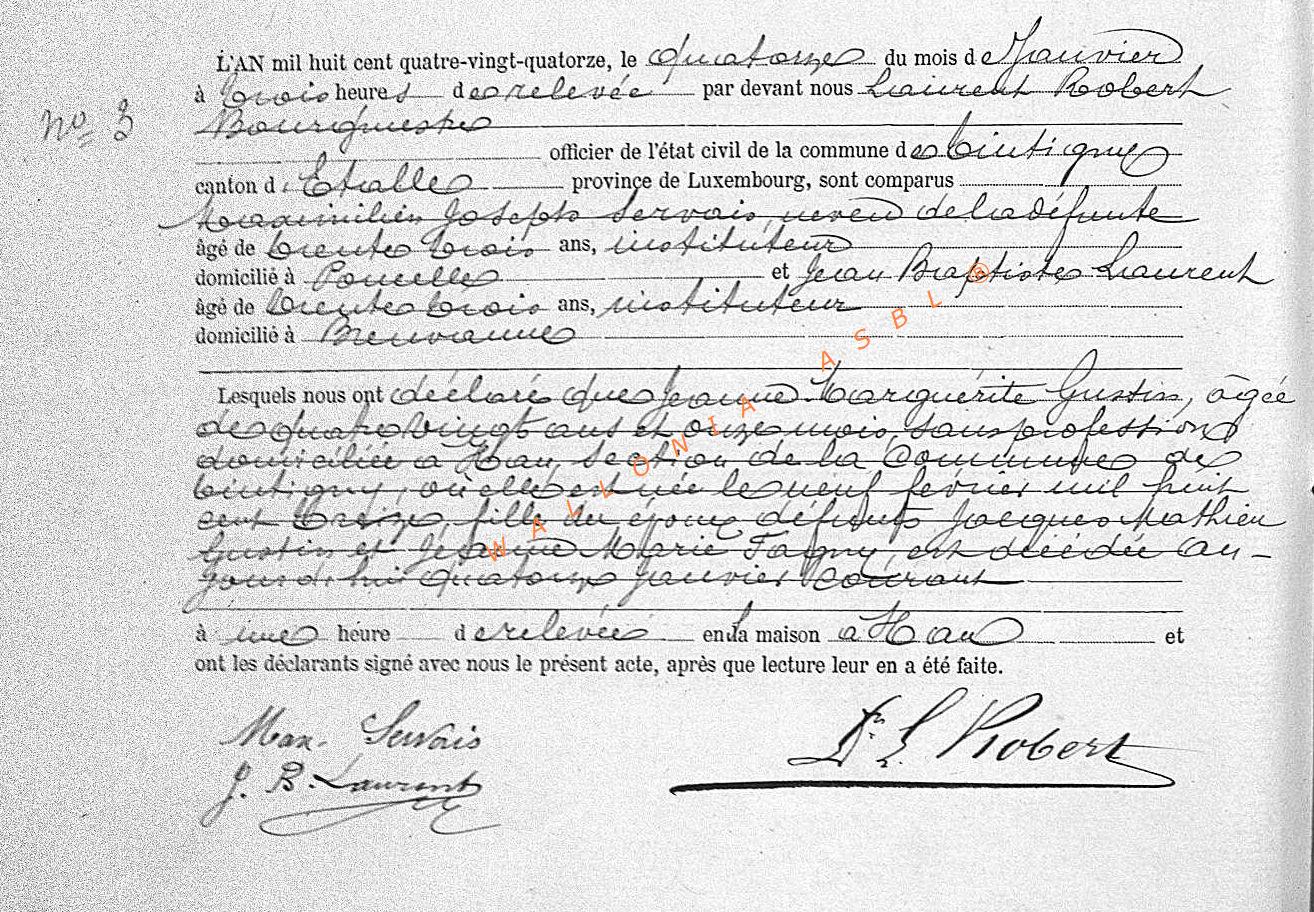 L'AN mil huit cent quatre-vingt-quatorze, le quatorze du mois de Janvier
à trois heures de relevée par devant nous Laurent Robert
No 3 Bourgmestre
officier de l'état civil de la commune de Tintigny
canton d'Etalle province de Luxembourg, sont comparus
Maximilien Joseph Servais, neveu de la défunte
âgé de trente trois ans, instituteur
domicilié à Poncelle et Jean Baptiste Laurent
âgé de trente trois ans, instituteur
domicilié à Breuvanne
Lesquels nous ont déclaré que Jeanne Marguérite Gustin, âgée
de quatre vingt ans et onze mois, sans profession
domiciliée à Han, section de la Commune de
Tintigny, où elle est née le neuf fevrier mil huit
cent treize, fille des époux défunts Jacques Mathieu
Gustin et Jeanne Marie Fagny, est décédée au-
jourd'hui quatorze Janvier courant
à une heure de relevée en la maison à Han et
ont les déclarants signé avec nous le présent acte, après que lecture leur en a été faite.
Max. Servais
Dr L. Robert
J. B. Laurent
WALLONIA ASBL ®